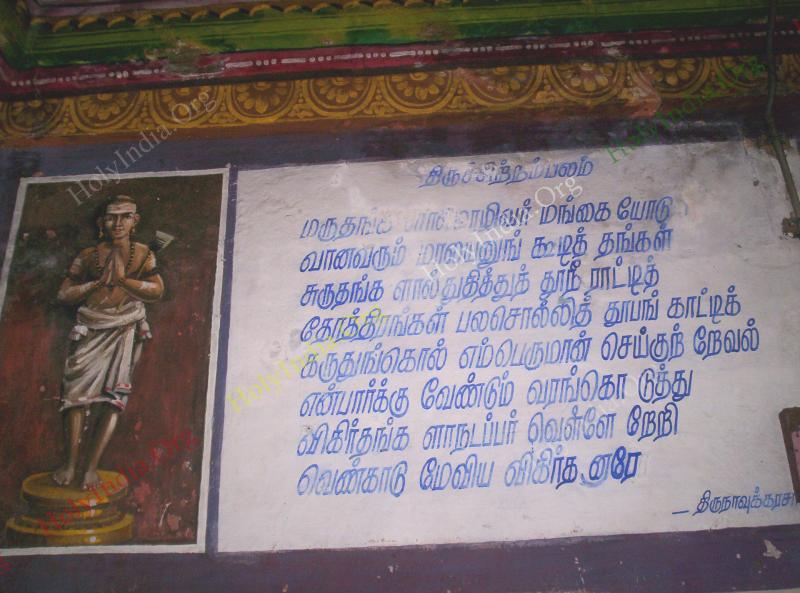 திருச்சிற்றம்பலம்
மங்கை யோடு
வானவரும் மாலயனுங் கூடித் தங்கள்
சுருதங்க ளாலதுதித்துத் தூநீ ராட்டித்
தோத்திரங்கள் பலசொல்லித் தூபங் காட்டிக்
கருதுங்கொல் எம்பெருமான் செய்குற் றேவல்
என்பார்க்கு வேண்டும் வரங்கொ டுத்து
விகிர்தங்க ளாநடப்பர் வெள்ளே றேறி
வெண்காடு மேவிய விகிர்த னாரே
_ திருநாவுக்கரசர்
HolyIndia.Org
HolyIndia.Org
HolyIndia.Org
HolyIndia.Org
HolyIndia.Org
HolyIndia.Org